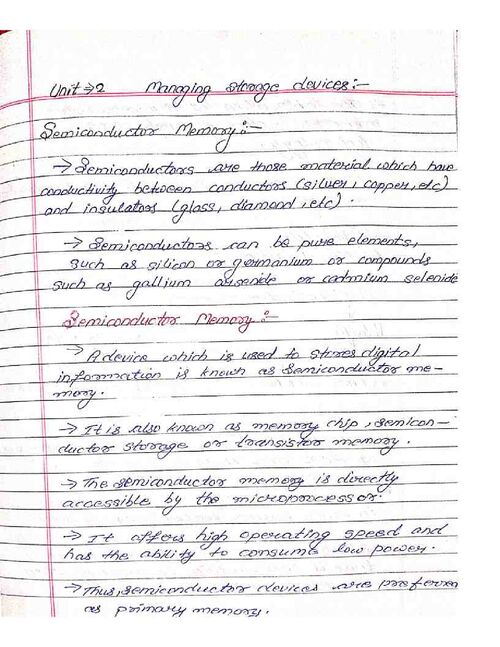 Unit ⇒ 2 Managing storage devices:-
Semiconductor Memory:-
→ Semiconductors are those material which have
conductivity between conductors (silver, copper, etc)
and insulators (glass, diamond, etc).
→ Semiconductors can be pure elements,
such as silicon or germanium or compounds
such as gallium arsenide or cadmium selenide
Semiconductor Memory:-
→ A device which is used to stores digital
information is known as Semiconductor me-
mory.
→ It is also known as memory chip, semicon-
ductor storage or transistor memory.
→ The semiconductor memory is directly
accessible by the microprocessor.
→ It offers high operating speed and
has the ability to consume low power.
→ Thus, semiconductor devices are preferred
as primary memory.